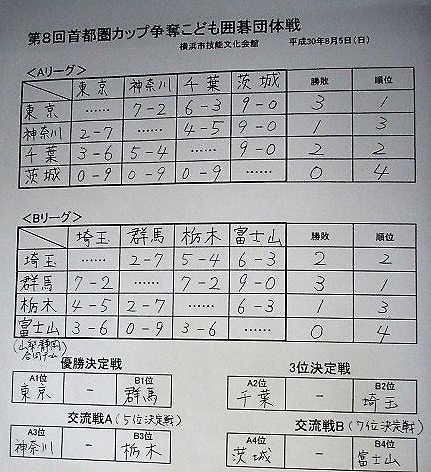 第8回首都圏カップ争奪こども囲碁団体戦
横浜市技能文化会館 平成30年8月5日(日)
<Aリーグ>
東京 神奈川 千葉 茨城 勝敗 順位
東京 …… 7-2 6-3 9-0 3 1
神奈川 2-7 …… 4-5 9-0 1 3
千葉 3-6 5-4 …… 9-0 2 2
茨城 0-9 0-9 0-9 …… 0 4
<Bリーグ>
埼玉 群馬 栃木 富士山 勝敗 順位
埼玉 …… 2-7 5-4 6-3 2 2
群馬 7-2 …… 7-2 9-0 3 1
栃木 4-5 2-7 …… 6-3 1 3
富士山 3-6 0-9 3-6 …… 0 4
(山梨静岡
合同チーム)
優勝決定戦 3位決定戦
A1位 B1位 A2位 B2位
東京 - 群馬 千葉 - 埼玉
交流戦A (5位決定戦) 交流戦B (7位決定戦)
A3位 B3位 A4位 B4位
神奈川 - 栃木 茨城 - 富士山